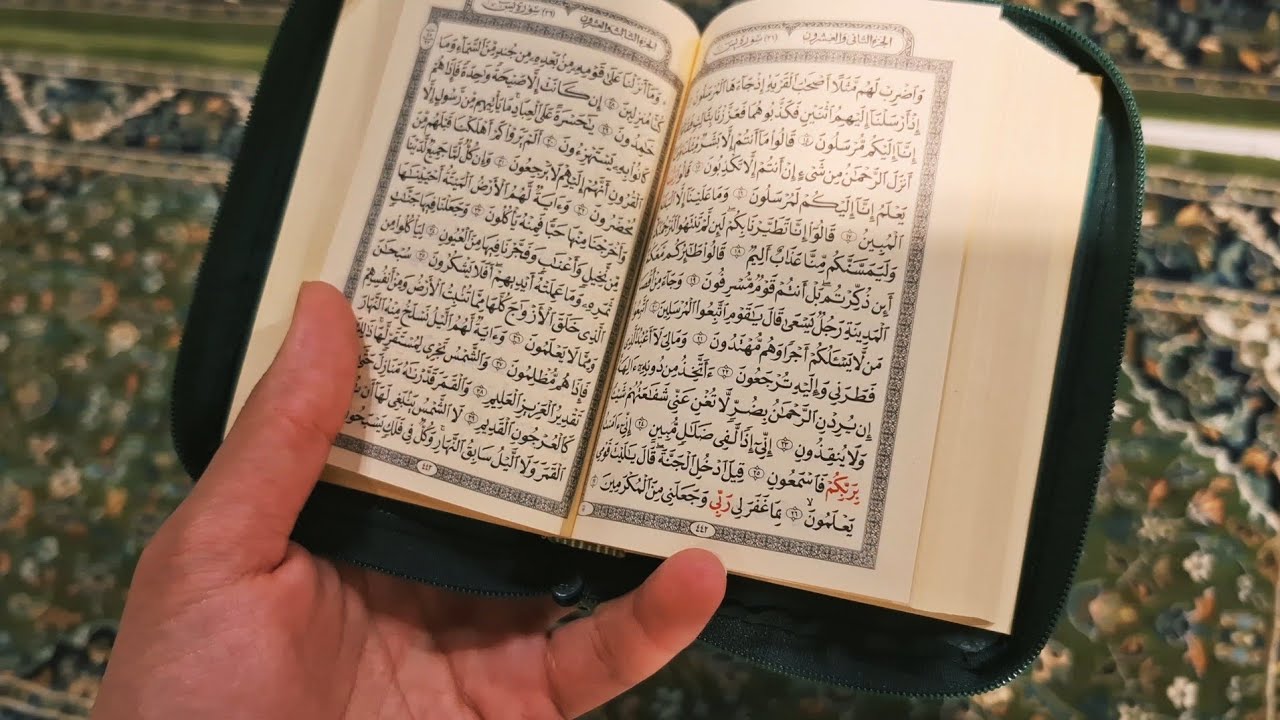 الجزء الثاني والعشرون
سورة يس (٣٦)
وَاضْرِبْ لَهُم مَّثَلًا أَصْحَابَ الْقَرْيَةِ إِذْ جَاءَهَا الْمُرْسَلُونَ
إِذْ أَرْسَلْنَا إِلَيْهِمُ اثْنَيْنِ فَكَذَّبُوهُمَا فَعَزَّزْنَا بِثَالِثٍ
إِنَّا إِلَيْكُم مُّرْسَلُونَ ١٤ قَالُوا مَا أَنتُمْ إِلَّا بَشَرٌ
أَنزَلَ الرَّحْمَٰنُ مِن شَيْءٍ إِنْ أَنتُمْ إِلَّا تَكْذِبُونَ ١٥ قَالُوا
يَعْلَمُ إِنَّا إِلَيْكُمْ لَمُرْسَلُونَ ١٦ وَمَا عَلَيْنَا إِلَّا
الْمُبِينُ ١٧ قَالُوا إِنَّا تَطَيَّرْنَا بِكُمْ لَئِن لَّمْ تَنتَهُوا
وَلَيَمَسَّنَّكُم مِّنَّا عَذَابٌ أَلِيمٌ ١٨ قَالُوا طَائِرُكُم مَّعَكُمْ
أَئِن ذُكِّرْتُم بَلْ أَنتُمْ قَوْمٌ مُّسْرِفُونَ ١٩ وَجَاءَ مِنْ
الْمَدِينَةِ رَجُلٌ يَسْعَىٰ قَالَ يَا قَوْمِ اتَّبِعُوا الْمُرْسَلِينَ ٢٠ اتَّبِعُوا
مَن لَّا يَسْأَلُكُمْ أَجْرًا وَهُم مُّهْتَدُونَ ٢١ وَمَا لِيَ لَا أَعْبُدُ الَّذِي
فَطَرَنِي وَإِلَيْهِ تُرْجَعُونَ ٢٢ أَأَتَّخِذُ مِن دُونِهِ آلِهَةً
إِن يُرِدْنِ الرَّحْمَٰنُ بِضُرٍّ لَّا تُغْنِ عَنِّي شَفَاعَتُهُمْ شَيْئًا
وَلَا يُنقِذُونِ ٢٣ إِنِّي إِذًا لَّفِي ضَلَالٍ مُّبِينٍ ٢٤ إِنِّي آمَنتُ
بِرَبِّكُمْ فَاسْمَعُونِ ٢٥ قِيلَ ادْخُلِ الْجَنَّةَ قَالَ يَا لَيْتَ قَوْمِي
يَعْلَمُونَ ٢٦ بِمَا غَفَرَ لِي رَبِّي وَجَعَلَنِي مِنَ الْمُكْرَمِينَ
٤٤٢
الجزء الثالث والعشرون
سورة يس (٣٦)
وَمَا أَنزَلْنَا عَلَىٰ قَوْمِهِ مِن بَعْدِهِ مِن جُندٍ مِّنَ السَّمَاءِ وَمَا
كُنَّا مُنزِلِينَ ٢٨ إِن كَانَتْ إِلَّا صَيْحَةً وَاحِدَةً فَإِذَا هُمْ
خَامِدُونَ ٢٩ يَا حَسْرَةً عَلَى الْعِبَادِ مَا يَأْتِيهِم مِّن رَّسُولٍ إِلَّا
كَانُوا بِهِ يَسْتَهْزِئُونَ ٣٠ أَلَمْ يَرَوْا كَمْ أَهْلَكْنَا قَبْلَهُم مِّنَ
الْقُرُونِ أَنَّهُمْ إِلَيْهِمْ لَا يَرْجِعُونَ ٣١ وَإِن كُلٌّ لَّمَّا جَمِيعٌ لَّدَيْنَا
مُحْضَرُونَ ٣٢ وَآيَةٌ لَّهُمُ الْأَرْضُ الْمَيْتَةُ أَحْيَيْنَاهَا
وَأَخْرَجْنَا مِنْهَا حَبًّا فَمِنْهُ يَأْكُلُونَ ٣٣ وَجَعَلْنَا فِيهَا جَنَّاتٍ
مِّن نَّخِيلٍ وَأَعْنَابٍ وَفَجَّرْنَا فِيهَا مِنَ الْعُيُونِ ٣٤ لِيَأْكُلُوا مِن
ثَمَرِهِ وَمَا عَمِلَتْهُ أَيْدِيهِمْ أَفَلَا يَشْكُرُونَ ٣٥ سُبْحَانَ
الَّذِي خَلَقَ الْأَزْوَاجَ كُلَّهَا مِمَّا تُنبِتُ الْأَرْضُ وَمِنْ أَنفُسِهِمْ
وَمِمَّا لَا يَعْلَمُونَ ٣٦ وَآيَةٌ لَّهُمُ اللَّيْلُ نَسْلَخُ مِنْهُ النَّهَارَ
فَإِذَا هُم مُّظْلِمُونَ ٣٧ وَالشَّمْسُ تَجْرِي لِمُسْتَقَرٍّ لَّهَا ذَٰلِكَ
تَقْدِيرُ الْعَزِيزِ الْعَلِيمِ ٣٨ وَالْقَمَرَ قَدَّرْنَاهُ مَنَازِلَ حَتَّىٰ عَادَ
كَالْعُرْجُونِ الْقَدِيمِ ٣٩ لَا الشَّمْسُ يَنبَغِي لَهَا أَن تُدْرِكَ
الْقَمَرَ وَلَا اللَّيْلُ سَابِقُ النَّهَارِ وَكُلٌّ فِي فَلَكٍ يَسْبَحُونَ
٤٤٢